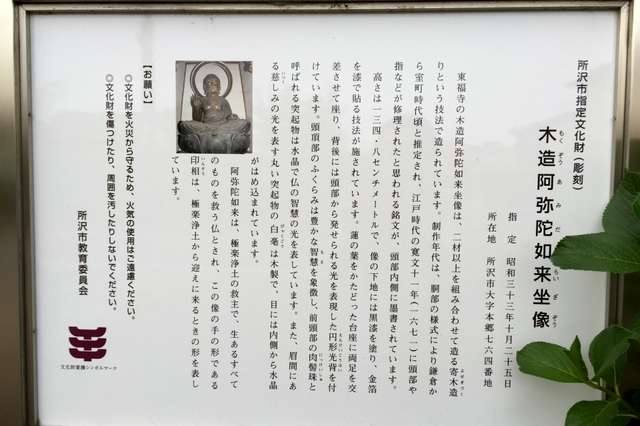 所沢市指定文化財（彫刻）
木造阿弥陀如来坐像
もくぞうあみだにょらいざぞう
指定　昭和三十三年十月二十五日
所在地　所沢市大字本郷七六四番地
東福寺の木造阿弥陀如来坐像は、二材以上を組み合わせて造る寄木造
よせぎづくり
りという技法で造られています。制作年代は、胴部の様式により鎌倉か
ら室町時代頃と推定され、江戸時代の寛文十一年（一六七一）に頭部や
指などが修理されたと思われる銘文が、頭部内側に墨書されています。
高さは一三四・八センチメートルで、像の下地には黒漆を塗り、金箔
を漆で貼る技法が施されています。蓮の葉をかたどった台座に両足を交
差させて座り、背後には頭部から発せられる光を表現した円形光背を付
えんけいこうはい
けています。頭頂部のふくらみは豊かな智慧を象徴し、前頭部の肉髻珠と
ちえ
にくけいしゅ
呼ばれる突起物は水晶で仏の智慧の光を表しています。また、眉間にあ
る慈しみの光を表す丸い突起物の白毫は木製で、目には内側から水晶
いつく
びゃくごう
がはめ込まれています。
阿弥陀如来は、極楽浄土の救主で、生あるすべて
のものを救う仏とされ、この像の手の形である
印相は、極楽浄土から迎えに来るときの形を表し
いんそう
ています。
【お願い】
◎文化財を火災から守るため、火気の使用はご遠慮ください。
◎文化財を傷つけたり、周囲を汚したりしないでください。
所沢市教育委員会
文化財愛護シンボルマーク